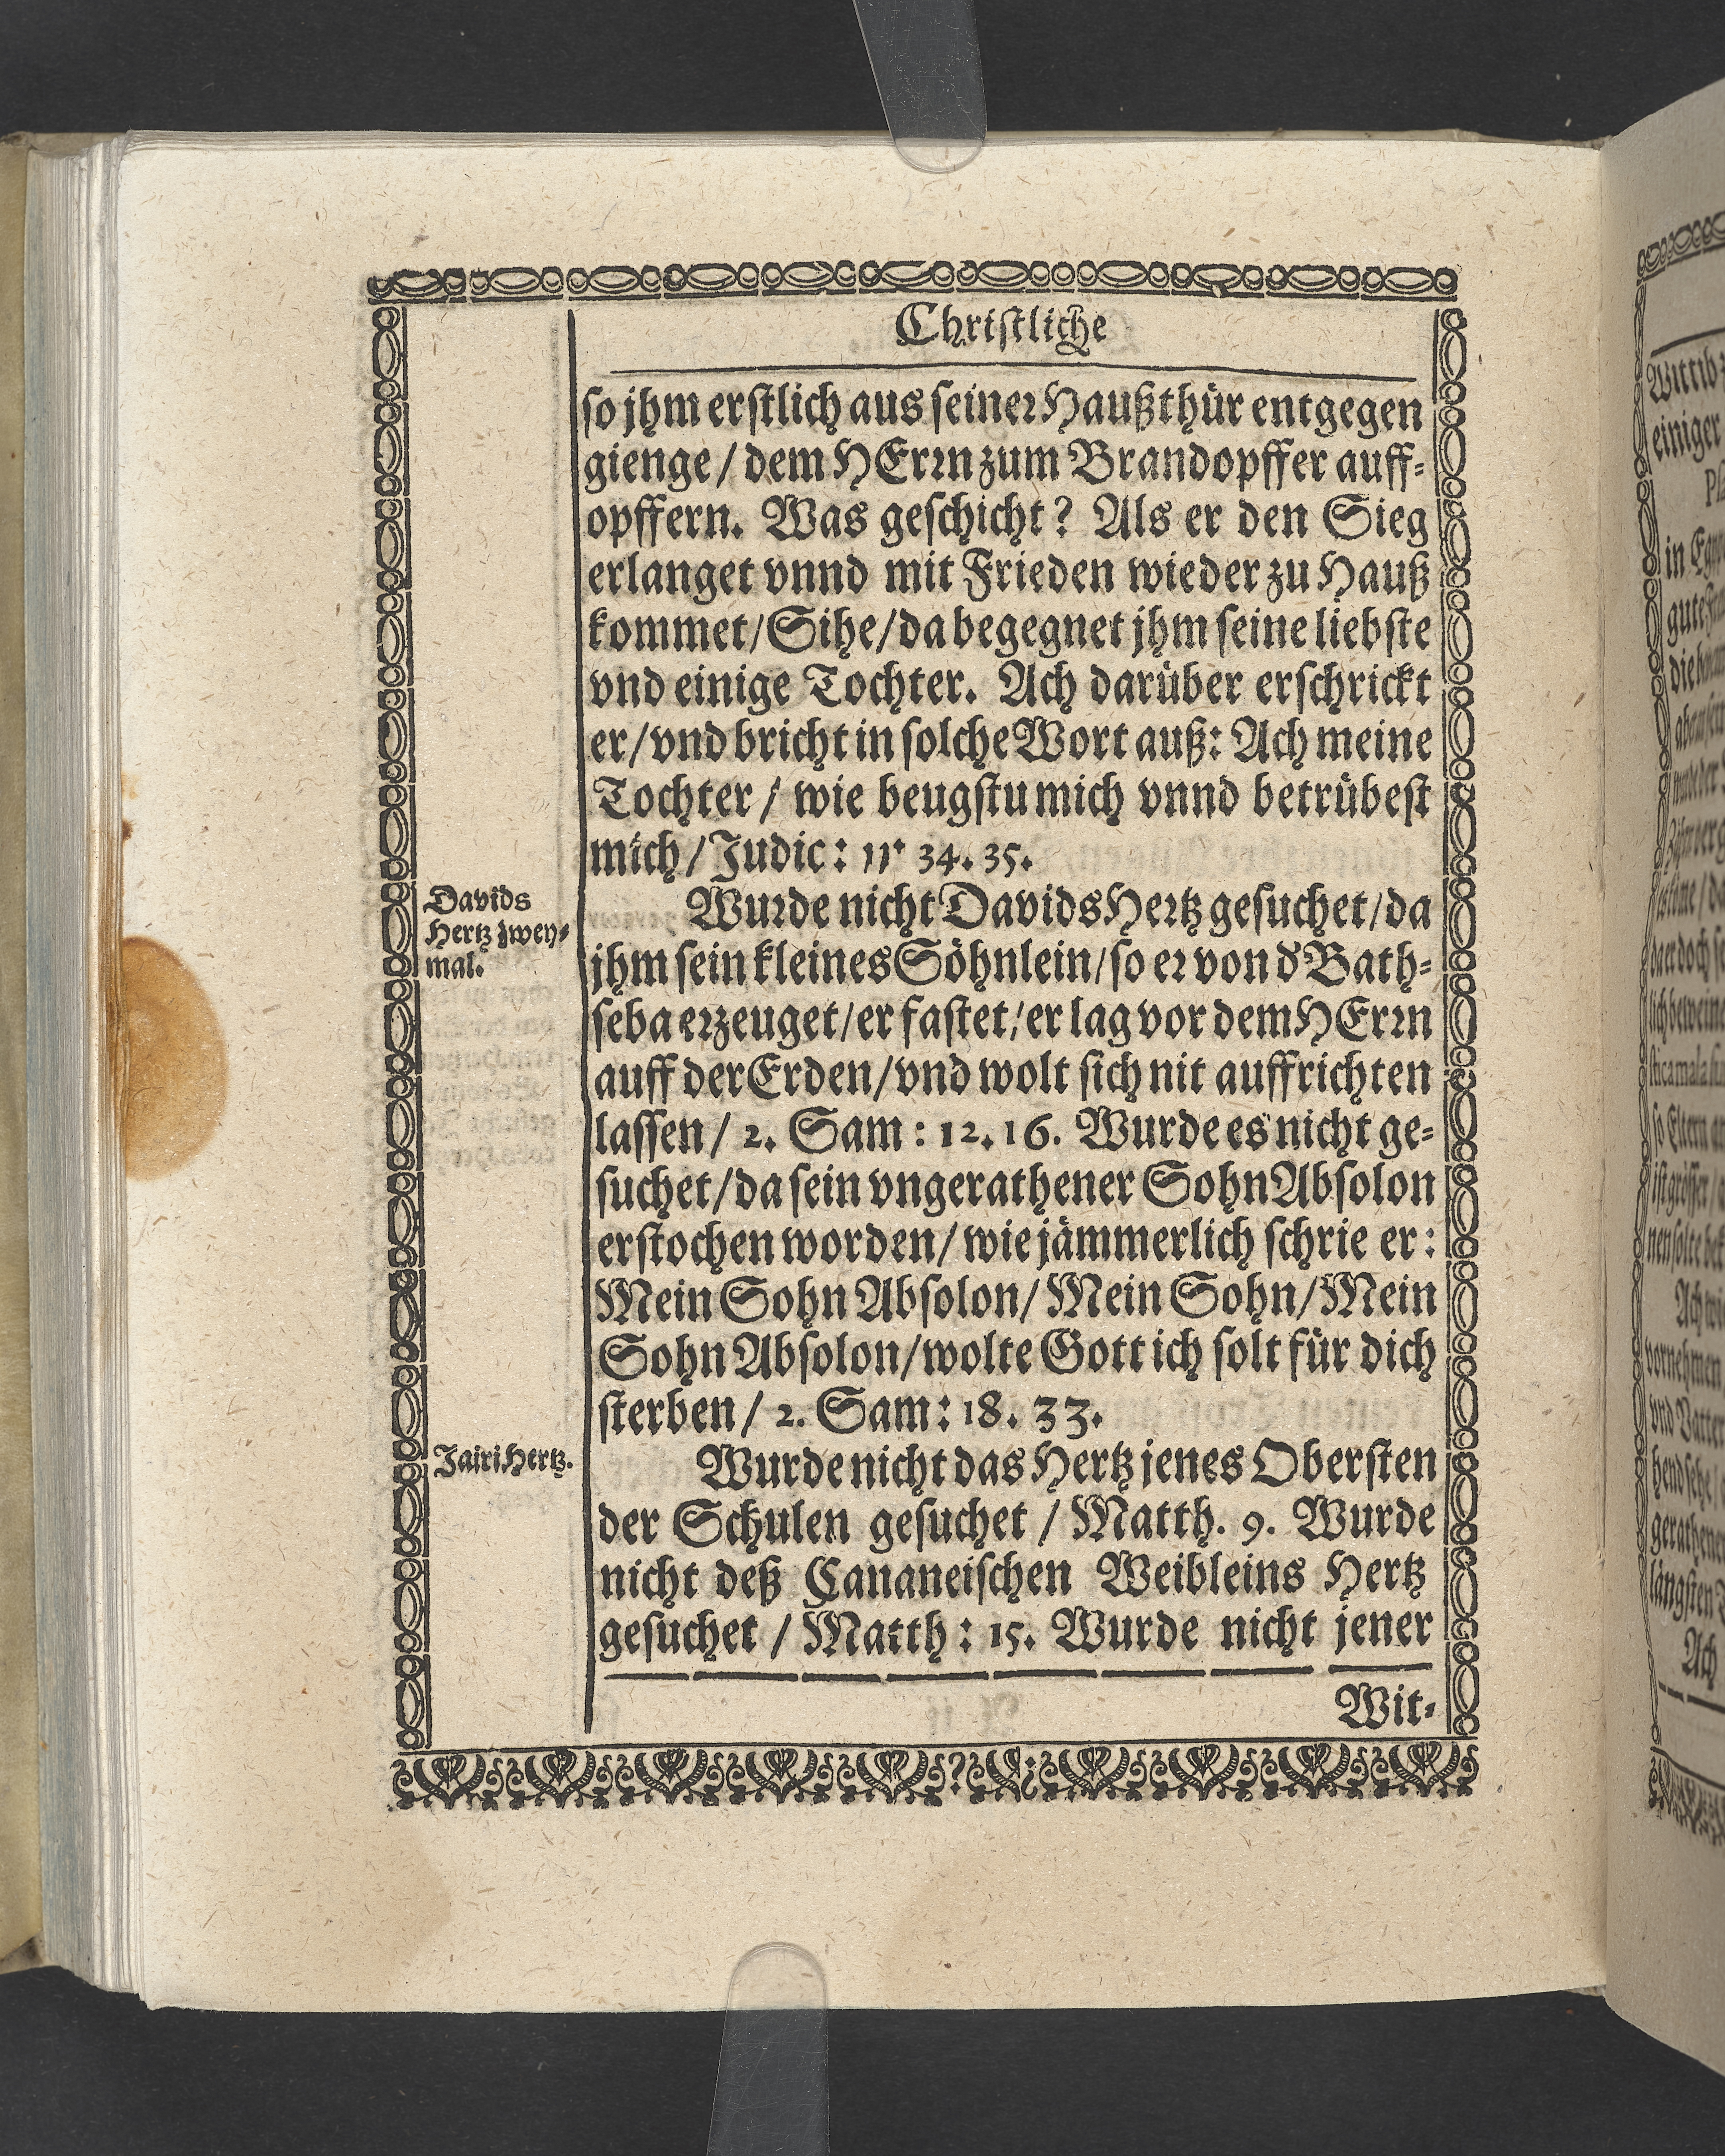 Christliche
so jhm erstlich aus seiner Haußthür entgegen
gienge / dem HErrn zum Brandopffer auff-
opffern. Was geschicht? Als er den Sieg
erlanget vnnd mit Frieden wieder zu Hauß
kommet / Sihe / da begegnet jhm seine liebste
vnd einige Tochter. Ach darüber erschrickt
er / vnd bricht in solche Wort auß: Ach meine
Tochter / wie beugstu mich vnnd betrübest
mich / Judic: 11. 34. 35.
Davids
Hertz zwey-
mal.
Wurde nicht Davids Hertz gesuchet / da
jhm sein kleines Söhnlein / so er von d' Bath-
seba erzeuget / er fastet / er lag vor dem HErrn
auff der Erden / vnd wolt sich nit auffrichten
lassen / 2. Sam: 12. 16. Wurde es nicht ge-
suchet / da sein vngerathener Sohn Absolon
erstochen worden / wie jämmerlich schrie er:
Mein Sohn Absolon / Mein Sohn / Mein
Sohn Absolon / wolte Gott ich solt für dich
sterben / 2. Sam: 18. 33.
Jairi Hertz.
Wurde nicht das Hertz jenes Obersten
der Schulen gesuchet / Matth. 9. Wurde
nicht deß Cananeischen Weibleins Hertz
gesuchet / Matth: 15. Wurde nicht jener
Wit-
Wittib
einiger
in
gute
Ach
vornehmen
vnd Vatter
Ach